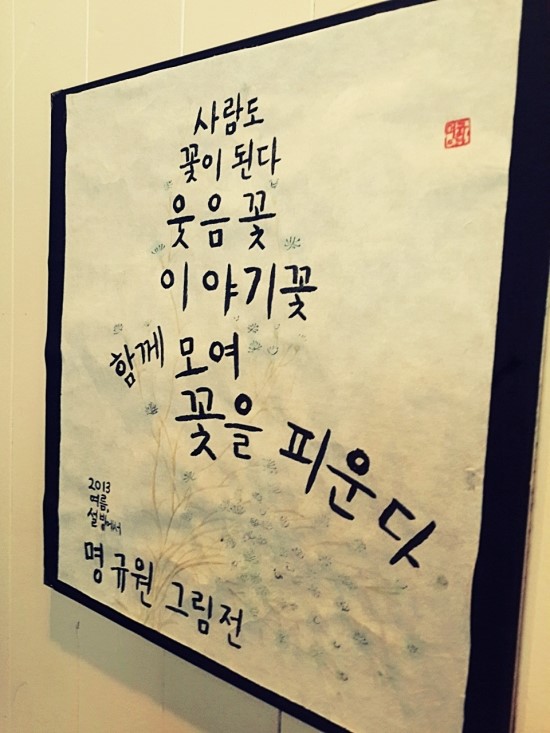 사람도
꽃이 된다
웃음꽃
이야기꽃
함께 모여
꽃을 피운다
2013
여름,
설밭에서
명규원 그림전